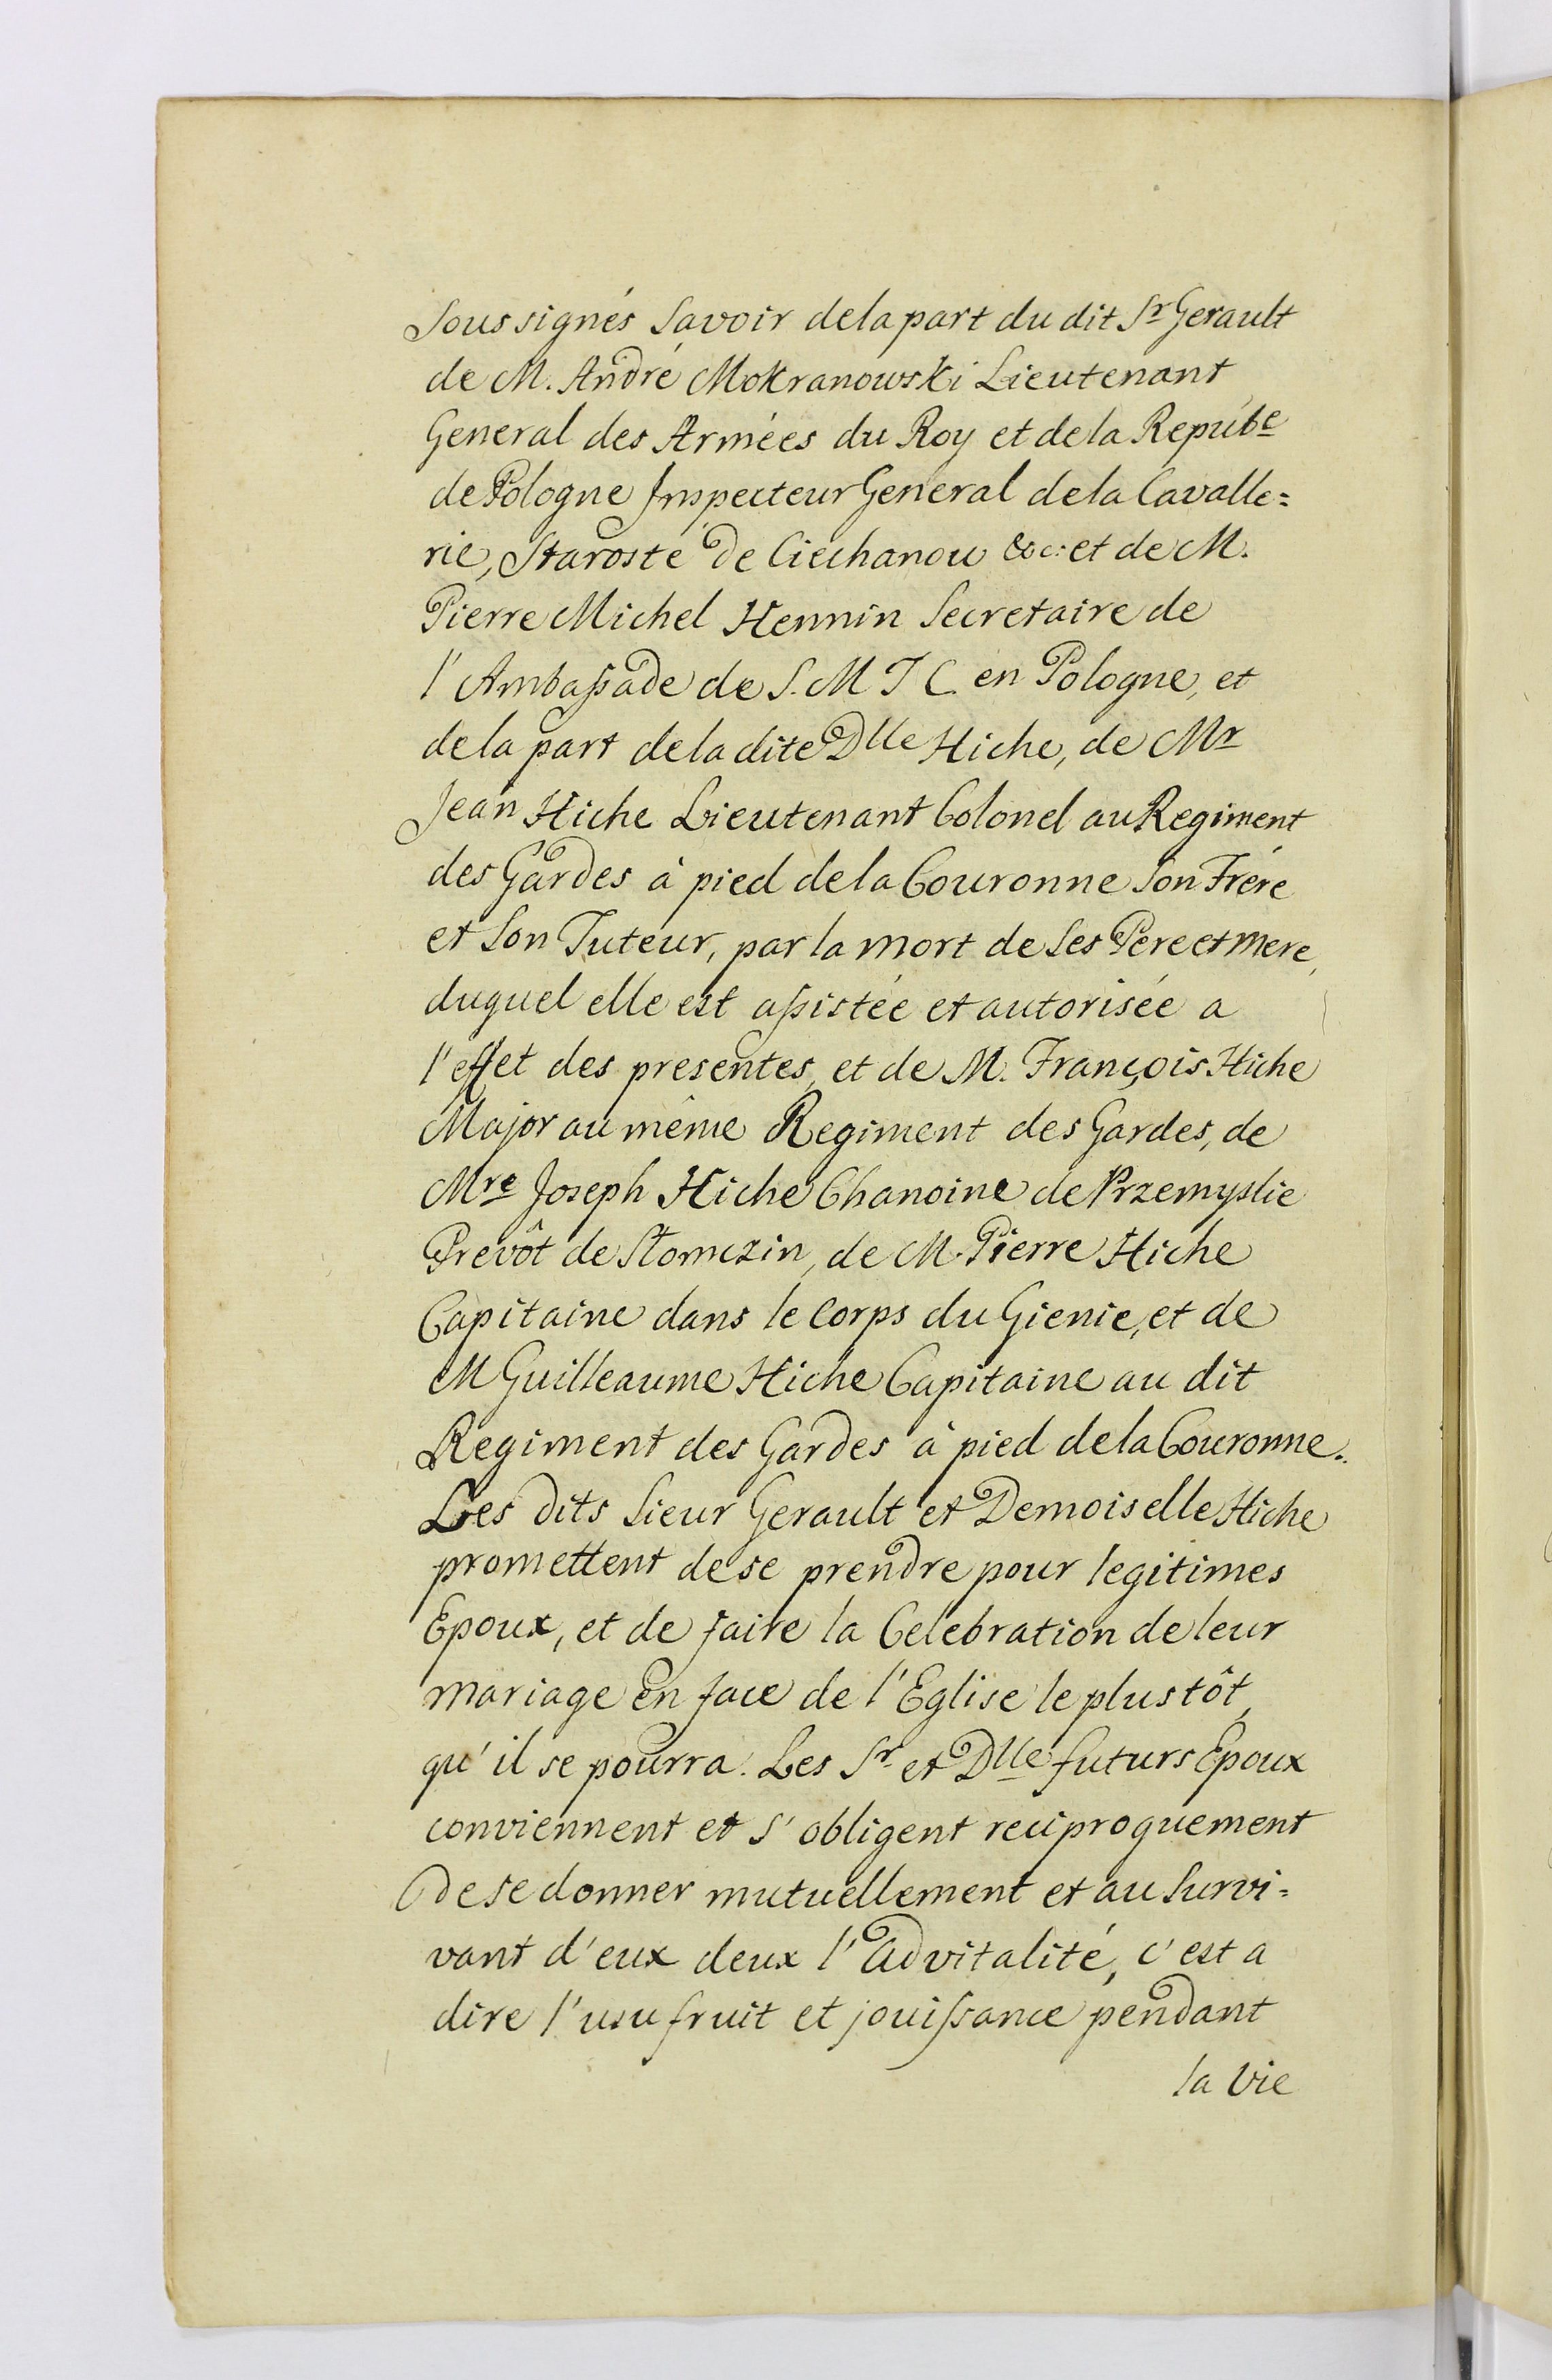 Soussignés Savoir de la part du dit Sr Gerault
de M. André Mokranowski Lieutenant
General des Armées du Roy et de la Repube
de Pologne Inspecteur General de la Cavalle=
rie, Staroste de Ciechanow &c: et de M.
Pierre Michel Hennin Secretaire de
l'Ambassade de S. M T C. en Pologne, et
de la part de la dite Dlle Hiche, de Mr
Jean Hiche Lieutenant Colonel au Regiment
des Gardes à pied de la Couronne Son Frére
et Son Tuteur, par la mort de Ses Pere et mere,
duquel elle est assistée et autorisée a
l'effet des presentes, et de M. François Hiche
Major au même Regiment des Gardes, de
Mre Joseph Hiche Chanoine de Przemyslie
Prevôt de Slomczin, de M. Pierre Hiche
Capitaine dans le Corps du Gienie, et de
M Guilleaume Hiche Capitaine au dit
Regiment des Gardes à pied de la Couronne.
Les dits Sieur Gerault et Demoiselle Hiche
promettent de se prendre pour legitimes
Epoux, et de faire la Celebration de leur
mariage en face de l'Eglise le plus tôt,
qu'il se pourra. Les Sr et Dlle futurs Epoux
conviennent et s'obligent reciproquement
de se donner mutuellement et au Survi=
vant d'eux deux l'advitalité, c'est a
dire l'usufruit et jouissance pendant
la Vie